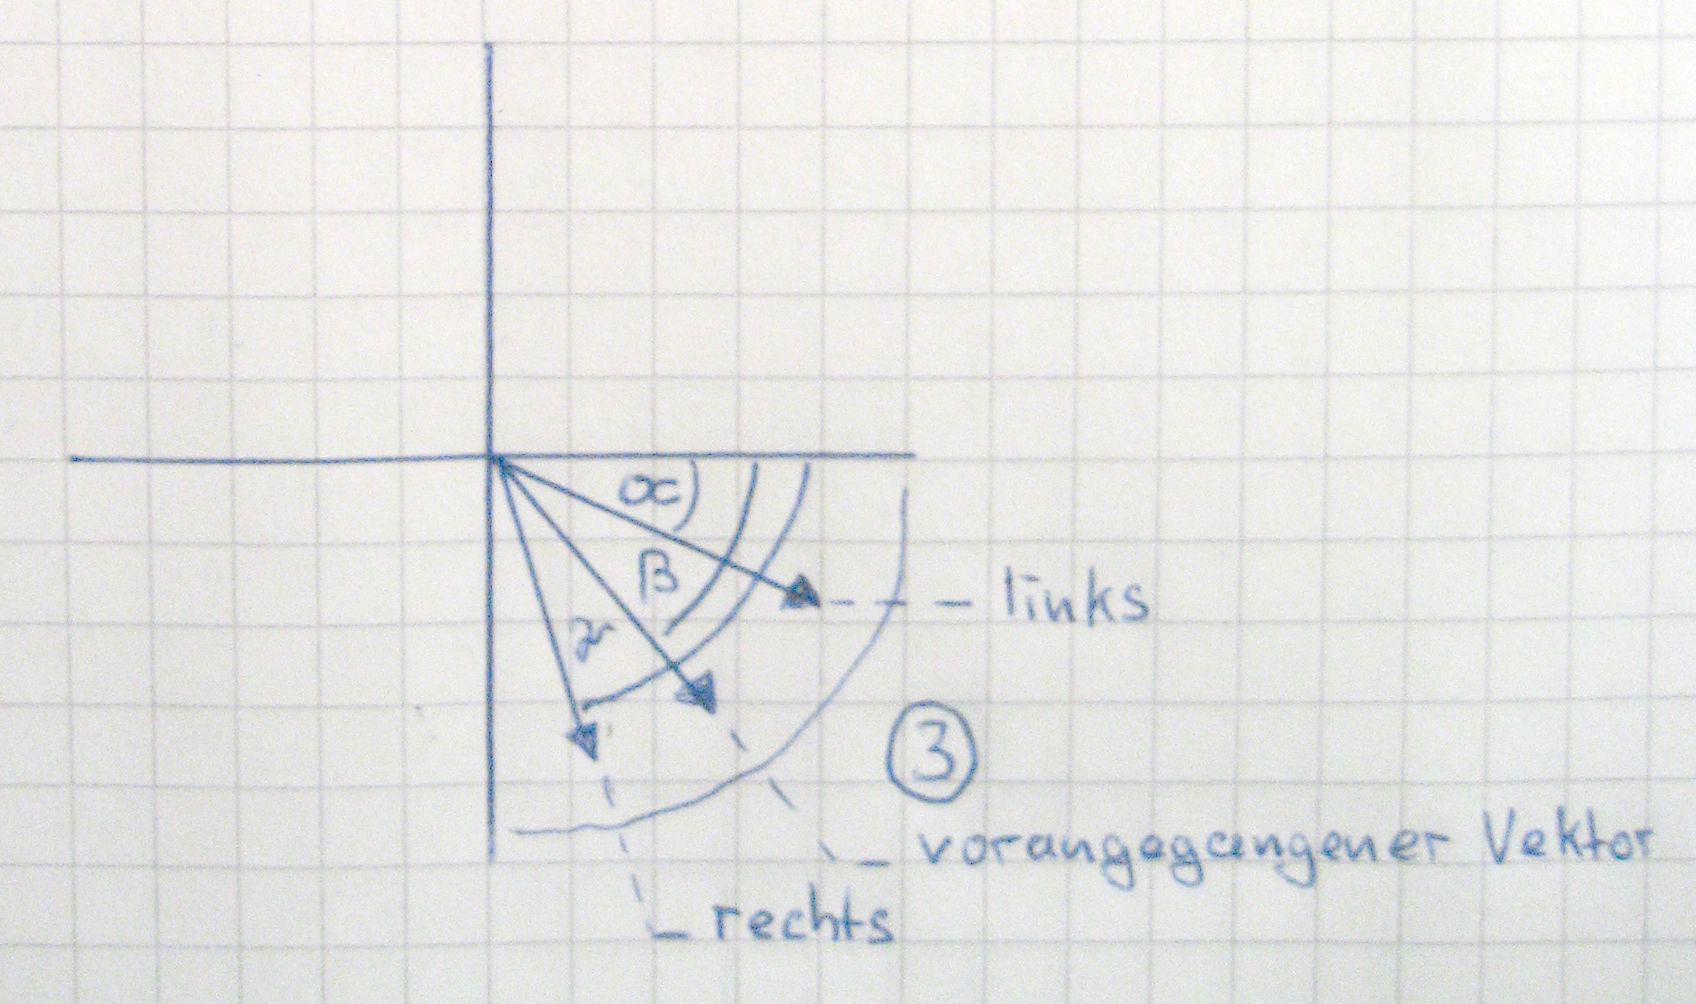 α
β
γ
links
3
vorangegangener Vektor
rechts